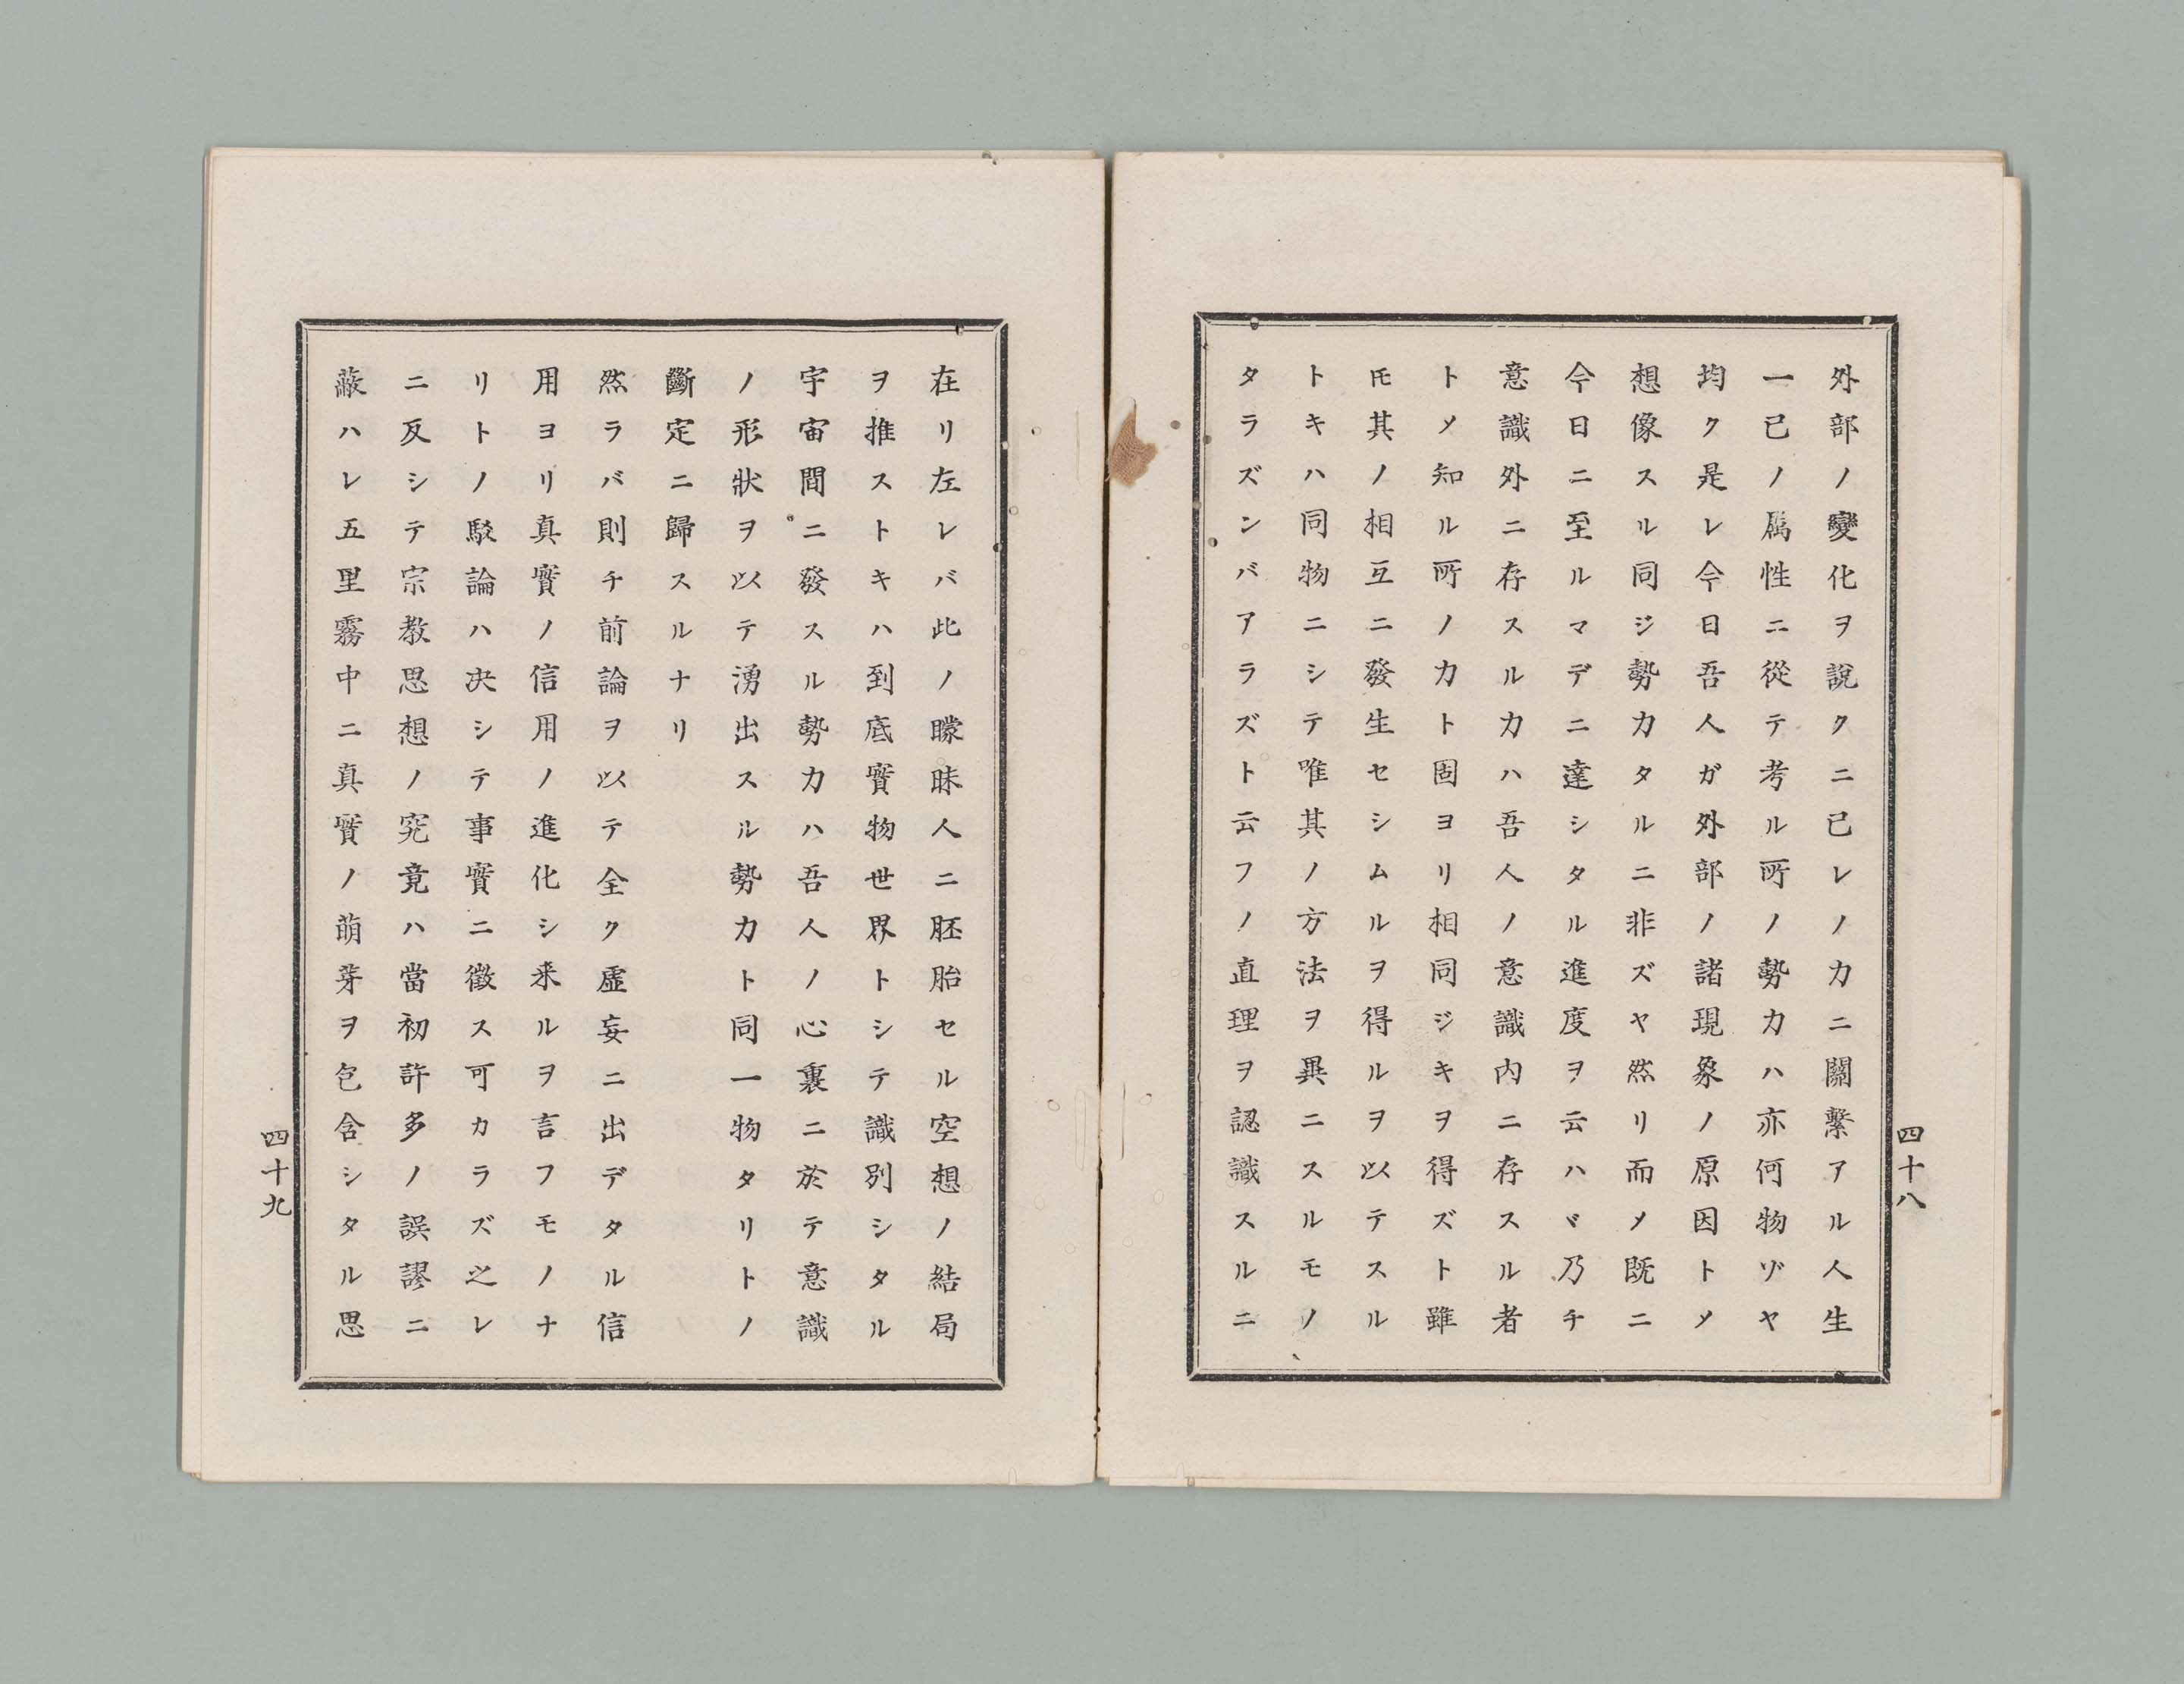 外部ノ變化ヲ說クニ己レノ力ニ關繫アル人生
一己ノ属性ニ從テ考ル所ノ勢力ハ亦何物ゾヤ
均ク是レ今日吾人ガ外部ノ諸現象ノ原因トメ
想像スル同ジ勢力タルニ非ズヤ然リ而メ既ニ
今日ニ至ルマデニ達シタル進度ヲ云ハヾ乃チ
意識外ニ存スル力ハ吾人ノ意識内ニ存スル者
トメ知ル所ノ力ト固ヨリ相同ジキヲ得ズト雖
𪜈其ノ相互ニ發生セシムルヲ得ルヲ以テスル
トキハ同物ニシテ唯其ノ方法ヲ異ニスルモノ
タラズンバアラズト云フノ直理ヲ認識スルニ
四十八
在リ左レバ此ノ矇昧人ニ胚胎セル空想ノ結局
ヲ推ストキハ到底實物世界トシテ識別シタル
宇宙間ニ發スル勢力ハ吾人ノ心裏ニ於テ意識
ノ形狀ヲ以テ湧出スル勢力ト同一物タリトノ
斷定ニ歸スルナリ
然ラバ則チ前論ヲ以テ全ク虛妄ニ出デタル信
用ヨリ真實ノ信用ノ進化シ来ルヲ言フモノナ
リトノ駁論ハ决シテ事實ニ徵ス可カラズ之レ
ニ反シテ宗教思想ノ究竟ハ當初許多ノ誤謬ニ
蔽ハレ五里霧中ニ真實ノ萠芽ヲ包含シタル思
四十九